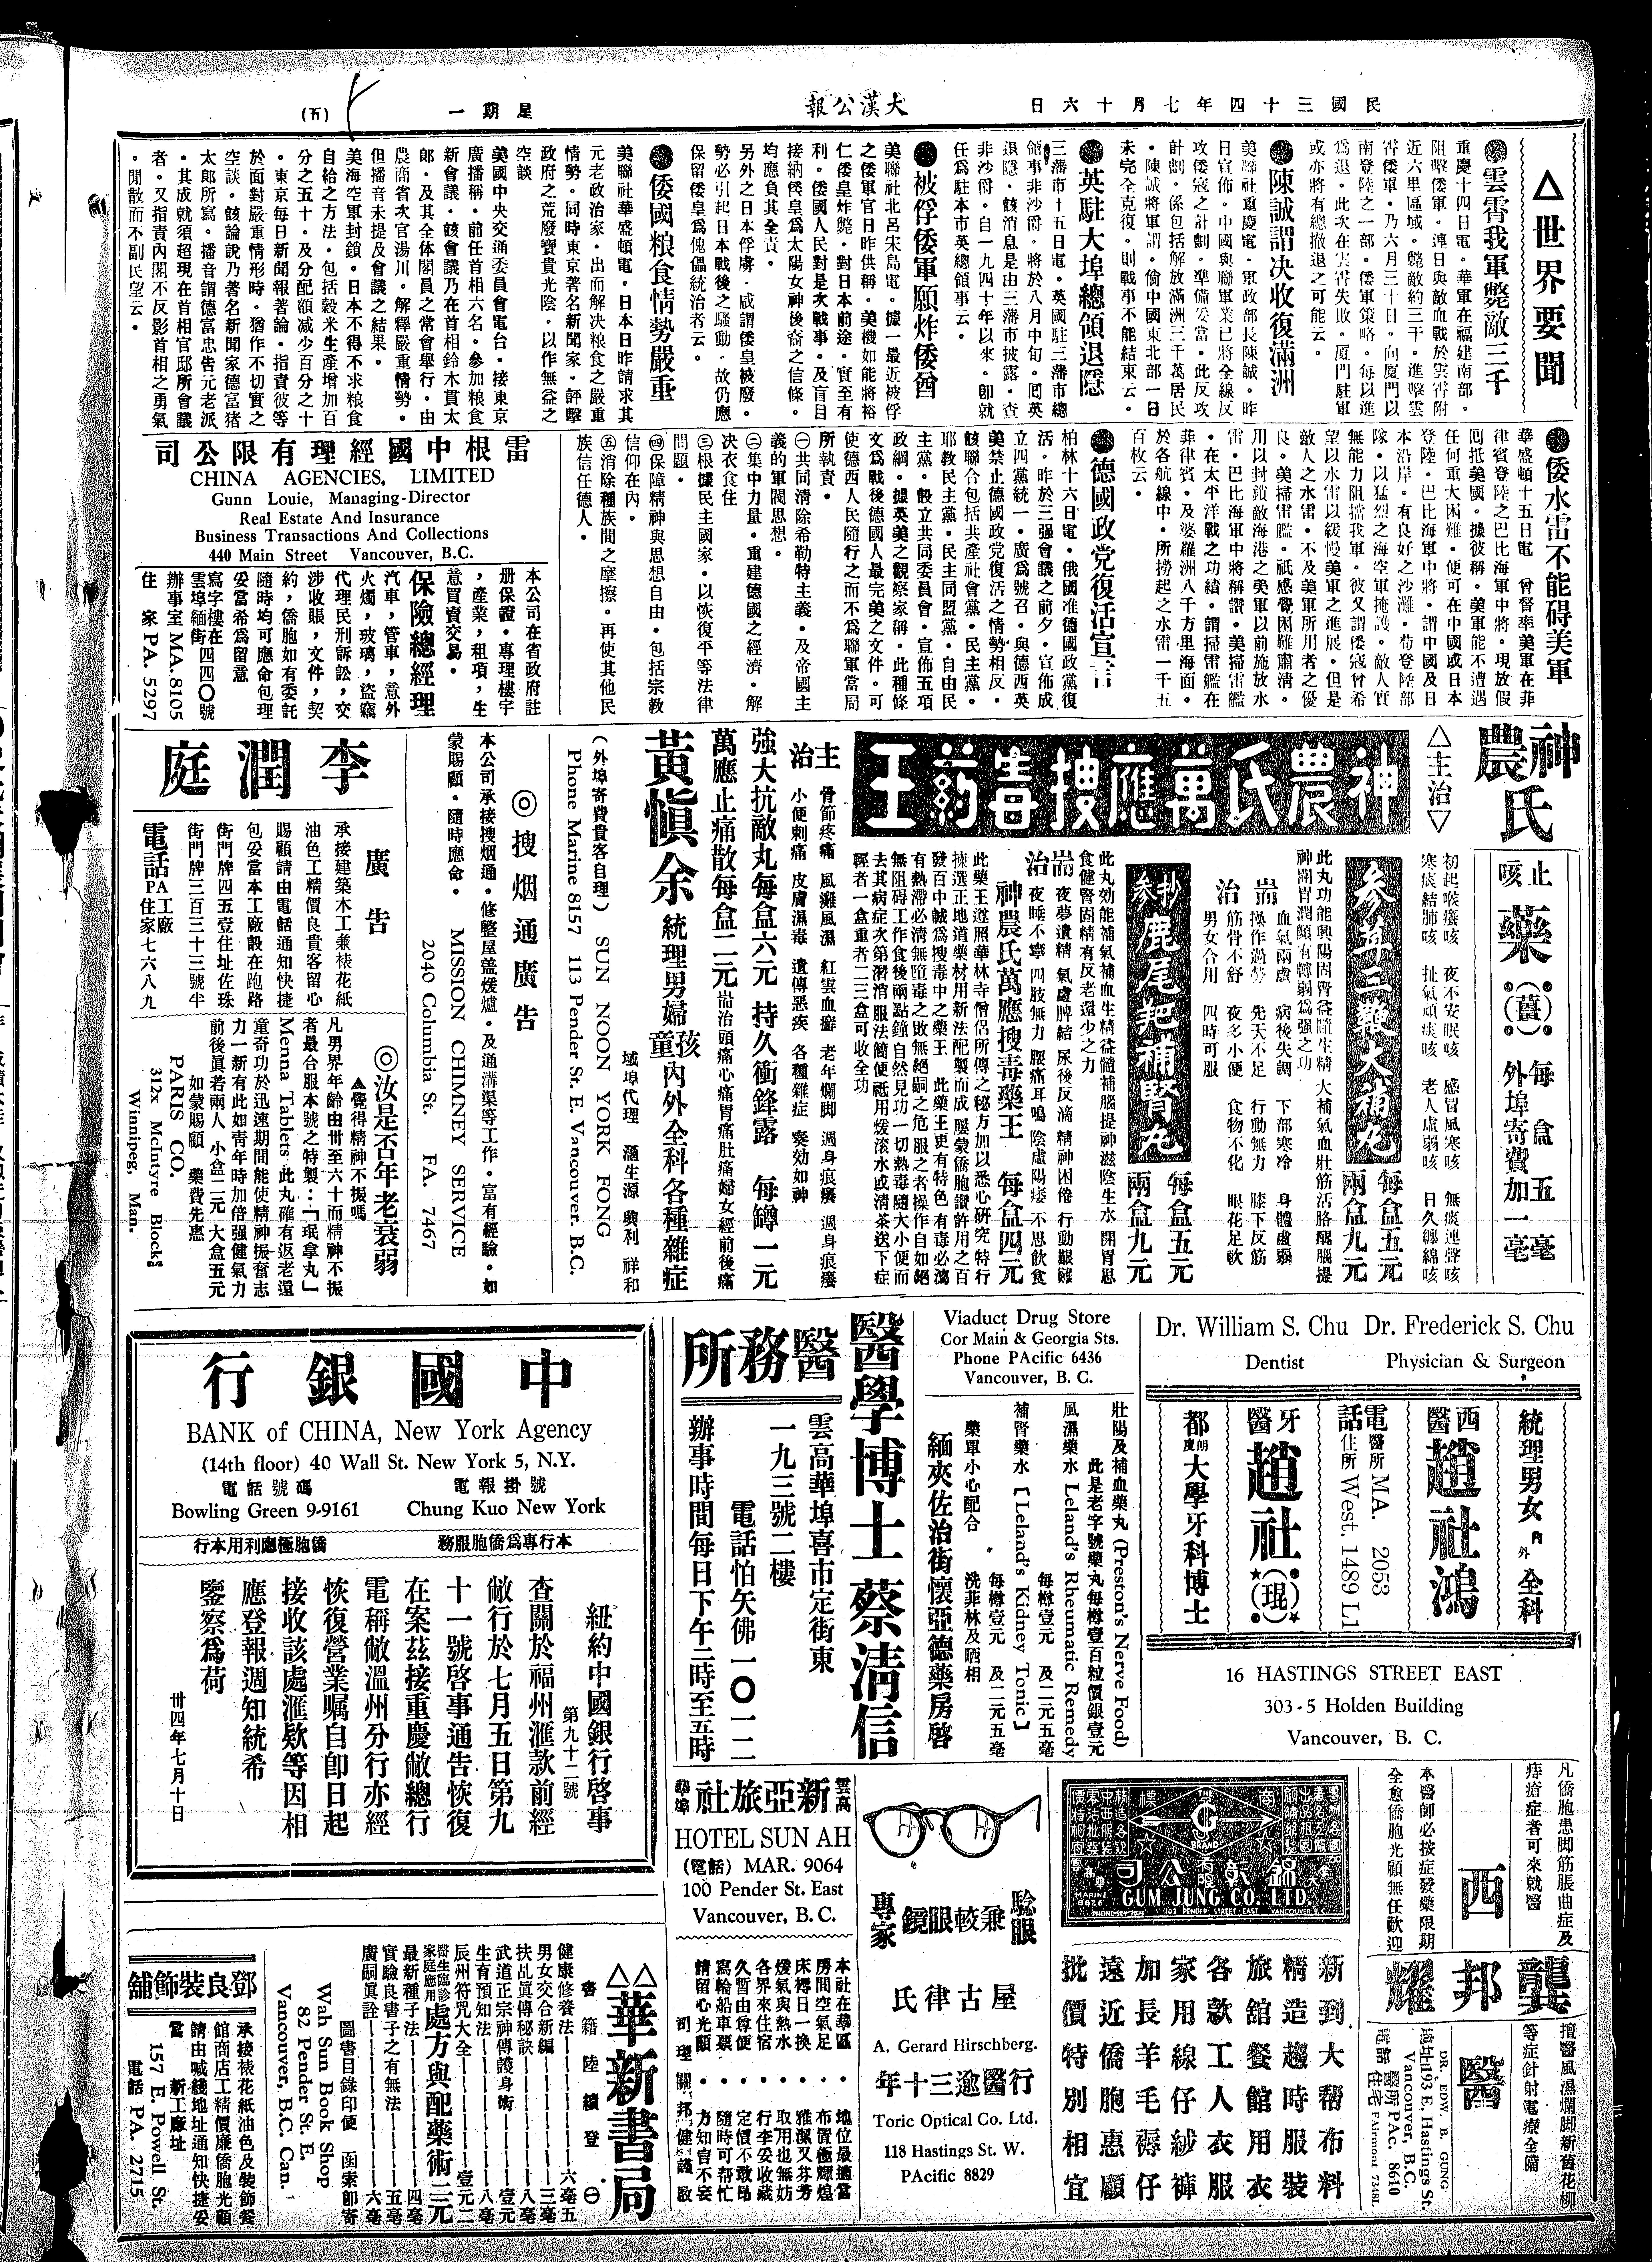 民國三十四年七月十六日
大漢公報
星期一
(五)
△世界要聞
●雲霄我軍斃敵三千
重慶十四日電。華軍在福建南部。
阻擊倭軍。連日與敵血戰於雲霄附
近六里區域。斃敵約三千。進擊雲
霄倭軍。乃六月三十日。向厦門以
南登陸之一部。倭軍策略。每以進
爲退。此次在雲霄失敗。厦門駐軍
或亦將有總撤退之可能云。
●陳誠謂决收復滿洲
美聯社重慶電。軍政部長陳誠。昨
日宣佈。中國與聯軍業已將全線反
攻倭寇之計劃。準備妥當。此反攻
計劃。係包括解放滿洲三千萬居民
。陳誠將軍謂。倘中國東北部一日
未完全克復。則戰事不能結束云。
●英駐大埠總領退隱
三藩市十五日電。英國駐三藩市總
領事非沙爵。將於八月中旬。囘英
退隱。該消息是由三藩市披露。查
非沙爵。自一九四十年以來。卽就
任爲駐本市英總領事云。
●被俘倭軍願炸倭酋
美聯社北呂宋島電。據一最近被俘
之倭軍官日昨供稱。美機如能將裕
仁倭皇炸斃。對日本前途。實至有
利。倭國人民對是次戰事。及盲目
接納倭皇爲太陽女神後裔之信條。
均應負其全責。
另外之日本俘虜。咸謂倭皇被廢。
勢必引起日本戰後之騷動。故仍應
保留倭皇爲傀儡統治者云。
●倭國粮食情勢嚴重
美聯社華盛頓電。日本日昨請求其
元老政治家。出而解决粮食之嚴重
情勢。同時東京著名新聞家。評擊
政府之荒廢寶貴光陰。以作無益之
空談。
美國中央交通委員會電台。接東京
廣播稱。前任首相六名。參加粮食
新會議。該會議乃在首相鈴木貫太
郞。及其全体閣員之常會舉行。由
農商省次官湯川。解釋嚴重情勢。
但播音未提及會議之結果。
美海空軍封鎖。日本不得不求粮食
自給之方法。包括穀米生產增加百
分之五十。及分配額減少百分之十
。東京每日新聞報著論。指責彼等
於面對嚴重情形時。猶作不切實之
空談。該論說乃著名新聞家德富猪
太郞所寫。播音謂德富忠吿元老派
。其成就須超現在首相官邸所會議
者。又指責內閣不反影首相之勇氣
。閒散而不副民望云。
●倭水雷不能碍美軍
華盛頓十五日電　曾督率美軍在菲
律賓登陸之巴比海軍中將。現放假
囘抵美國。據彼稱。美軍能不遭遇
任何重大困難。便可在中國或日本
登陸。巴比海軍中將。謂中國及日
本沿岸。有良好之沙灘。苟登陸部
隊。以猛烈之海空軍掩護。敵人實
無能力阻擋我軍。彼又謂倭寇曾希
望以水雷以緩慢美軍之進展。但是
敵人之水雷。不及美軍所用者之優
良。美掃雷艦。祇感覺困難肅清。
用以封鎖敵海港之美軍以前施放水
雷。巴比海軍中將稱讚。美掃雷艦
。在太平洋戰之功績。謂掃雷艦在
菲律賓。及婆羅洲八千方里海面。
於各航線中。所撈起之水雷一千五
百枚云。
●德國政党復活宣言
柏林十六日電。俄國准德國政黨復
活。昨於三强會議之前夕。宣佈成
立四黨統一。廣爲號召。與德西英
美禁止德國政党復活之情勢相反。
該聯合包括共產社會黨。民主黨。
耶教民主黨。民主同盟黨。自由民
主黨。設立共同委員會。宣佈五項
政綱。據英美之觀察家稱。此種條
文爲戰後德國人最完美之文件。可
使德西人民隨行之而不爲聯軍當局
所執責。
㈠共同清除希勒特主義。及帝國主
義的軍閥思想。
㈡集中力量。重建德國之經濟。解
决衣食住
㈢根據民主國家。以恢復平等法律
問題。
㈣保障精神與思想自由。包括宗教
信仰在內。
㈤消除種族間之摩擦。再使其他民
族信任德人。
雷根中國經理有限公司
CHINA AGENCIES, LIMITED
Gunn Louie, Managing-Director
Real Estate And Insurance
Business Transactions And Collections
440 Main Street Vancouver, B.C.
本公司在省政府註
册保證。專理樓宇
，產業，租項，生
意買賣交易。
保險總經理
汽車，管車，意外
火燭，玻璃，盜竊
代理民刑訴訟，交
涉收賬，文件，契
約，僑胞如有委託
隨時均可應命包理
妥當希爲留意
寫字樓在
雲埠緬街四四〇號
辦事室 MA. 8105
住　家 PA. 5297
神農氏
△主治▽
止咳藥(薑)每盒五毫
外埠寄費加一毫
初起喉癢咳　夜不安眠咳　感冒風寒咳　無痰連聲咳
寒痰結肺咳　扯氣頑痰咳　老人虛弱咳　日久纏綿咳
神農氏萬應搜毒葯王
參茸三鞭大補丸
每盒五元
兩盒九元
此丸功能興陽固腎益髓生精　大補氣血壯筋活胳醒腦提
神開胃潤顏有轉弱爲强之功
耑治
血氣兩虛　病後失調　下部寒冷　身體虛弱
操作過勞　先天不足　行動無力　膝下反筋
筋骨不舒　夜多小便　食物不化　眼花足軟
男女合用　四時可服
參杞鹿尾羓補腎丸
每盒五元
兩盒九元
此丸効能補氣補血生精益髓補腦提神滋陰生水　開胃思
食健腎固精有反老還少之力
耑治
夜夢遺精　氣虛脾結　尿後反滴　精神困倦　行動艱難
夜睡不寧　四肢無力　腰痛耳鳴　陰虛陽痿　不思飲食
神農氏萬應搜毒藥王　每盒四元
此藥王遵照華林寺僧侶所傳之秘方加以悉心研究特行
揀選正地道藥材用新法配製而成　屢蒙僑胞讚許用之百
發百中誠爲搜毒中之藥王　此藥王更有特色有毒必瀉
有熱滯必清無隨毒之敗無絕嗣之危服之者操作自如絕
無阻碍工作食後兩點鐘自然見功一切熱毒隨大小便而
去其病症次第漸消服法簡便祗用煖滾水或清茶送下症
輕者一盒重者二三盒可收全功
主治
骨節疼痛　風癱風濕　紅雲血癬　老年爛脚　週身痕癢　週身痕癢
小便刺痛　皮膚濕毒　遺傳惡疾　各種雜症　奏効如神
強大抗敵丸每盒六元　持久衝鋒露　每罇一元
萬應止痛散每盒二元 耑治頭痛心痛胃痛肚痛婦女經前後痛
黃愼余 統理男婦孩童內外全科各種雜症
域埠代理　酒生源　興利　祥和
（外埠寄費貴客自理） SUN NOON YORK FONG
Phone Marine 8157 113 Pender St. E. Vancouver. B.C.
◎搜烟通廣告
本公司承接搜烟通。修整屋盖煖爐。及通溝渠等工作。富有經驗。如
蒙賜顧。隨時應命。
MISSION CHIMNEY SERVICE
2040 Columbia St. FA. 7467
李潤庭
廣告
承接建築木工兼裱花紙
油色工精價良貴客留心
賜顧請由電話通知快捷
包妥當本工廠設在跑路
街門牌四五壹住址佐珠
街門牌三百三十三號半
電話 PA 工廠
住家七六八九
◎汝是否年老衰弱
▲覺得精神不振嗎
凡男界年齡由卅至六十而精神不振
者最合服本號之特製：「珉拿丸」
Menna Tablets 此丸確有返老還
童奇功於迅速期間能使精神振奮志
力一新有此如靑年時加倍强健氣力
前後眞若兩人　小盒二元　大盒五元
如蒙賜顧　藥費先惠
PARIS CO.
312x McIntyre Block
Winnipeg, Man.
Dr. William S. Chu
Dentist
Dr. Frederick S. Chu
Physician & Surgeon
統理男女內外全科
西醫趙社鴻
電話 醫所 MA. 2053
住所 West. 1489 L1
牙醫趙社(琨)
都朗度大學牙科博士
16 HASTINGS STREET EAST
303-5 Holden Building
Vancouver, B. C.
Viaduct Drug Store
Cor Main & Georgia Sts.
Phone PAcific 6436
Vancouver, B. C.
壯陽及補血藥丸 (Preston's Nerve Food)
此是老字號藥丸每樽壹百粒價銀壹元
風濕藥水 Leland's Rheumatic Remedy
每樽壹元　及二元五毫
補腎藥水 [Leland's Kidney Tonic]
每樽壹元　及二元五毫
藥單小心配合　洗菲林及晒相
緬夾佐治街懷亞德藥房啓
醫學博士蔡清信
醫務所
雲高華埠喜市定街東
一九三號二樓
電話怕矢佛一〇一二
辦事時間每日下午二時至五時
中國銀行
BANK of CHINA, New York Agency
(14th floor) 40 Wall St. New York 5, N.Y.
電報掛號
Chung Kuo New York
電話號碼
Bowling Green 9-9161
本行專爲僑胞服務
僑胞極應利用本行
紐約中國銀行啓事
第九十二號
查關於福州滙款前經
敝行於七月五日第九
十一號啓事通告恢復
在案茲接重慶敝總行
電稱敝溫州分行亦經
恢復營業嘱自卽日起
接收該處滙欵等因相
應登報週知統希
鑒察爲荷
卅四年七月十日
凡僑胞患脚筋脹曲症及
痔瘡症者可來就醫
本醫師必按症發藥限期
全愈僑胞光顧無任歡迎
西醫
龔邦耀
擅醫風濕爛脚新舊花柳
等症針射電療全備
DR. EDW. B. GUNG
地址 193 E. Hastings St.
Vancouver, B.C.
電話 醫所 PAc. 8610
住宅 FAirmont 7348L
G
BRAND
錦彰有限公司
GUM JUNG CO. LTD.
MARINE 8826
102 PENDER STREET EAST VANCOUVER B.C.
新到大帮布料
精造趨時服裝
旅舘餐館用衣
各款工人衣服
家用線仔紗褲
加長羊毛褥仔
遠近僑胞惠顧
批價特別相宜
騐眼兼較眼鏡專家
屋古律氏
A. Gerard Hirschberg.
行醫逾三十年
Toric Optical Co. Ltd.
118 Hastings St. W.
PAcific 8829
雲高華埠 新亞旅社
HOTEL SUN AH
(電話) MAR. 9064
100 Pender St. East
Vancouver, B. C.
本社在華區・地位最適當
房間空氣足・布置極輝煌
床褥日一換・雅潔又芬芳
煖氣與熱水・取用也無妨
各界來住宿・行李妥收藏
久暫由尊便・定價不敢昂
寫輪船車票・隨時可帮忙
請留心光顧・力知自不妄
司理　關邦健謹啟
△△華新書局
書籍陸續登㊀
健康修養法——六毫五
男女交合新編——三毫
扶乩眞傳秘訣——八毫
武道正宗神傳護身術——壹元
生育預知法——八毫
辰州符咒大全——壹元二
醫生臨診家庭應用 處方與配藥術 三元
最新種子法——四毫
實驗良書子之有無法——五毫
廣嗣眞詮——六毫
圖書目錄印便　函索卽寄
Wah Sun Book Shop
82 Pender St. E.
Vancouver, B.C. Can.
鄧良裝飾舖
承接裱花紙油色及裝飾餐
館商店工精價廉僑胞光顧
請由喊綫地址通知快捷妥
當　新工廠址
157 E. Powell St.
電話 PA. 2715